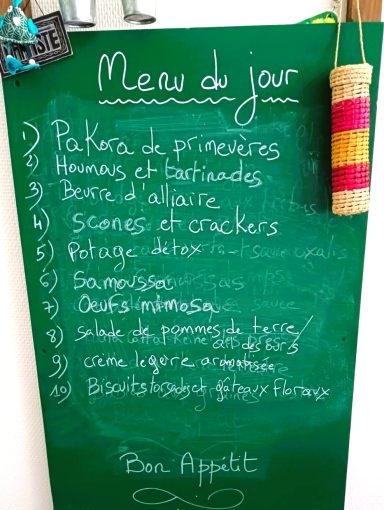 Menu du jour
1) Pakora de primevères
2) Houmous et tartinades
3) Beurre d'alliaire
4) scones et crackers
5) Potage détox
6) Samoussa
7) Oeufs mimosa
8) salade de pommes de terre/
ail des ours
9) crème légère aromatisée
10) Biscuits torsadés et gâteaux floraux
Bon Appétit